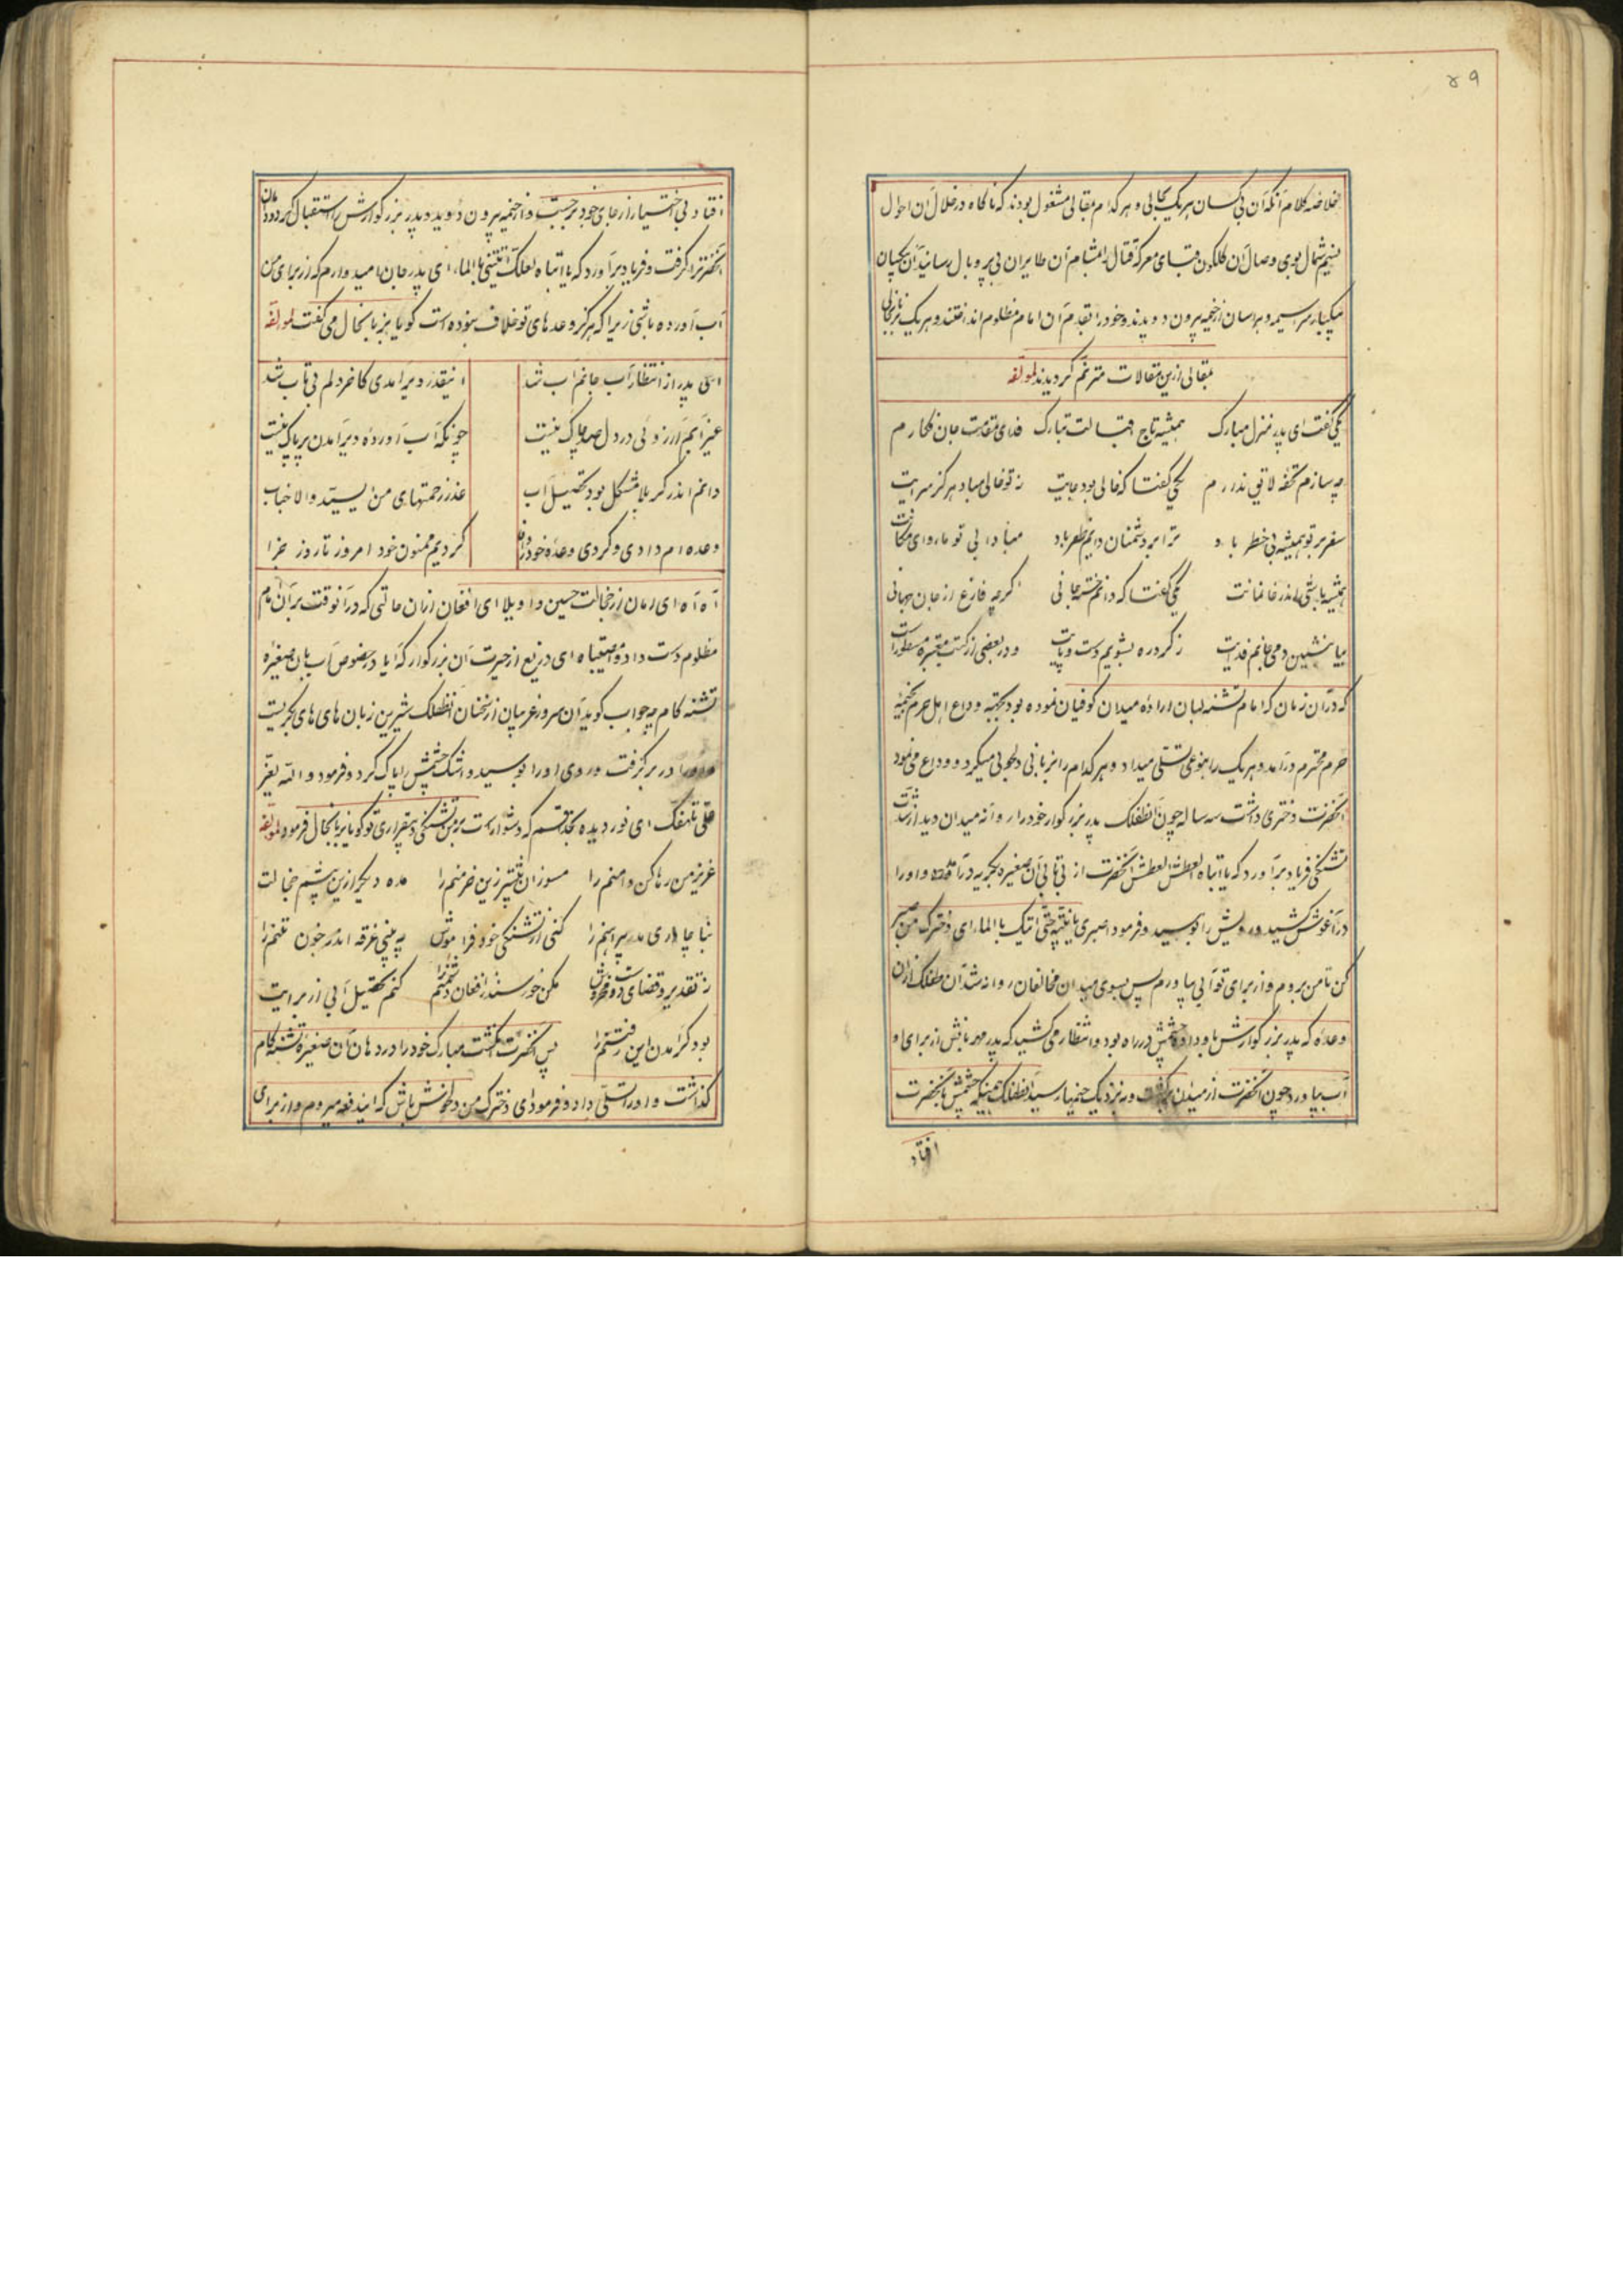 ۴۹
خلاصه کلام آنکه آن بی کسان هریک بحالی و هر کدام بمقالی مشغول بودند که ناکاه در خلال آن احوال
نسیم شمال بوی وصال آن کلکون قبای معرکه قتال را بمشام آن طایران بی پر و بال رسانید آن بیکسان
بیکبار سراسیمه و هراسان از خیمه بیرون دویدند و خود را بقدم آن امام مظلوم انداختند و هریک بزبانحالی
بمقالی ازین مقالات مترنم کردیدند لمولفه
یکی گفت ای پدر منزل مبارک همیشه تاج اقبالت تبارک فدای مقدمت جان فکارم
چه سازم تحفه لایق ندارم یکی گفتا که خالی بود جایت ز تو خالی مباد هرکز سرایت
سفر بر تو همیشه بی خطر باد ترا بر دشمنان دایم ظفر باد مبادا بی تو ماروای مکانت
همیشه باشی اندر خانمانت یکی گفتا که دانم خسته جانی کرچه فارغ از جان جهانی
بیا بنشین دمی جانم فدایت ز کرد ره بشویم دست و پایت و در بعضی از کتب معتبره مسطور است
که در آن زمان که امام تشنه لبان اراده میدان کوفیان نموده بود بجهة وداع اهل حرم بخیمه
حرم محترم در آمد و هریک را بنوعی تسلی میداد و هر کدام را بزبانی دلجویی میکرد و وداع می نمود
آنحضرت دختری داشت سه ساله چون آنطفلک پدر بزرکوار خود را روانه میدان دید از شدت
تشنکی فریاد برآورد که یا ابتاه العطش العطش آنحضرت از بی تابی آن صغیره بکریه در آمد و او را
در آغوش کشید و رویش را بوسید و فرمود اصبری یا بنیه حتی اتیک بالماء ای دخترک من صبر
کن تا من بروم و از برای تو آبی بیاورم پس بسوی میدان مخالفان روانه شد آن طفلک از آن
وعده که پدر بزرکوارش باو داد چشمش در راه بود و انتظار می کشید که پدر مهربانش از برای او
آب بیاورد چون آنحضرت از میدان برکشت و به نزدیک خیمها رسید آنطفلک همینکه چشمش بآنحضرت
افتاد
افتاد بی اختیار از جای خود برجست و از خیمه بیرون دوید و پدر بزرکوارش را استقبال کرد و دامان
آنحضرترا کرفت و فریاد برآورد که یا ابتاه لعلک اتیتنی بالماء ای پدر جان امیدوارم که از برای من
آب آورده باشی زیرا که هرکز وعدهای تو خلاف نبوده است کویا بزبانحال می گفت لمولفه
ای پدر از انتظار آب جانم آب شد اینقدر دیر آمدی کاخر دلم بی تاب شد
غیر آبم آرزوئی در دل صد چاک نیست چونکه آب آوردهٔ دیر آمدن پر باک نیست
دانم اندر کربلا مشکل بود تحصیل آب عذر زحمتهای من سید والا جناب
وعده ام دادی و کردی وعده خود را وفا کردیم ممنون خود امروز تا روز جزا
آه آه ای امان از خجالت حسین واویلا ای افغان از آن حالتی که در آنوقت بر آن امام
مظلوم دست داد وامصیبتاه ای دریغ از حیرت آن بزرکوار که آیا در خصوص آب بآن صغیره
تشنه کام چه جواب کوید آن سرور غریبان از سخنان آنطفلک شیرین زبان های های بکریست
و او را در بر کرفت و روی او را بوسید و اشک چشمش را پاک کرد و فرمود والله یعز
علی تلهفک ای نور دیده بخدا قسم که دشوار است بر من تشنکی و بیقراری تو کویا بزبانحال فرمود لمولفه
عزیز من رها کن دامنم را مسوزان بیشتر زین خرمنم را مده دیکر ازین بیشم خجالت
کنی از تشنکی خود فراموش چه بینی غرقه اندر خون تنم را
ز تقدیر و قضای مکن خورسند از افغان دشمنم را کنم تحصیل آبی از برایت
بود کر آمدن این رفتنم را پس آنحضرت انکشت مبارک خود را در دهان آن صغیره تشنه کام
کذاشت و او را تسلی داد و فرمود ای دخترک من دلخوش باش که ایندفعه میروم و از برای